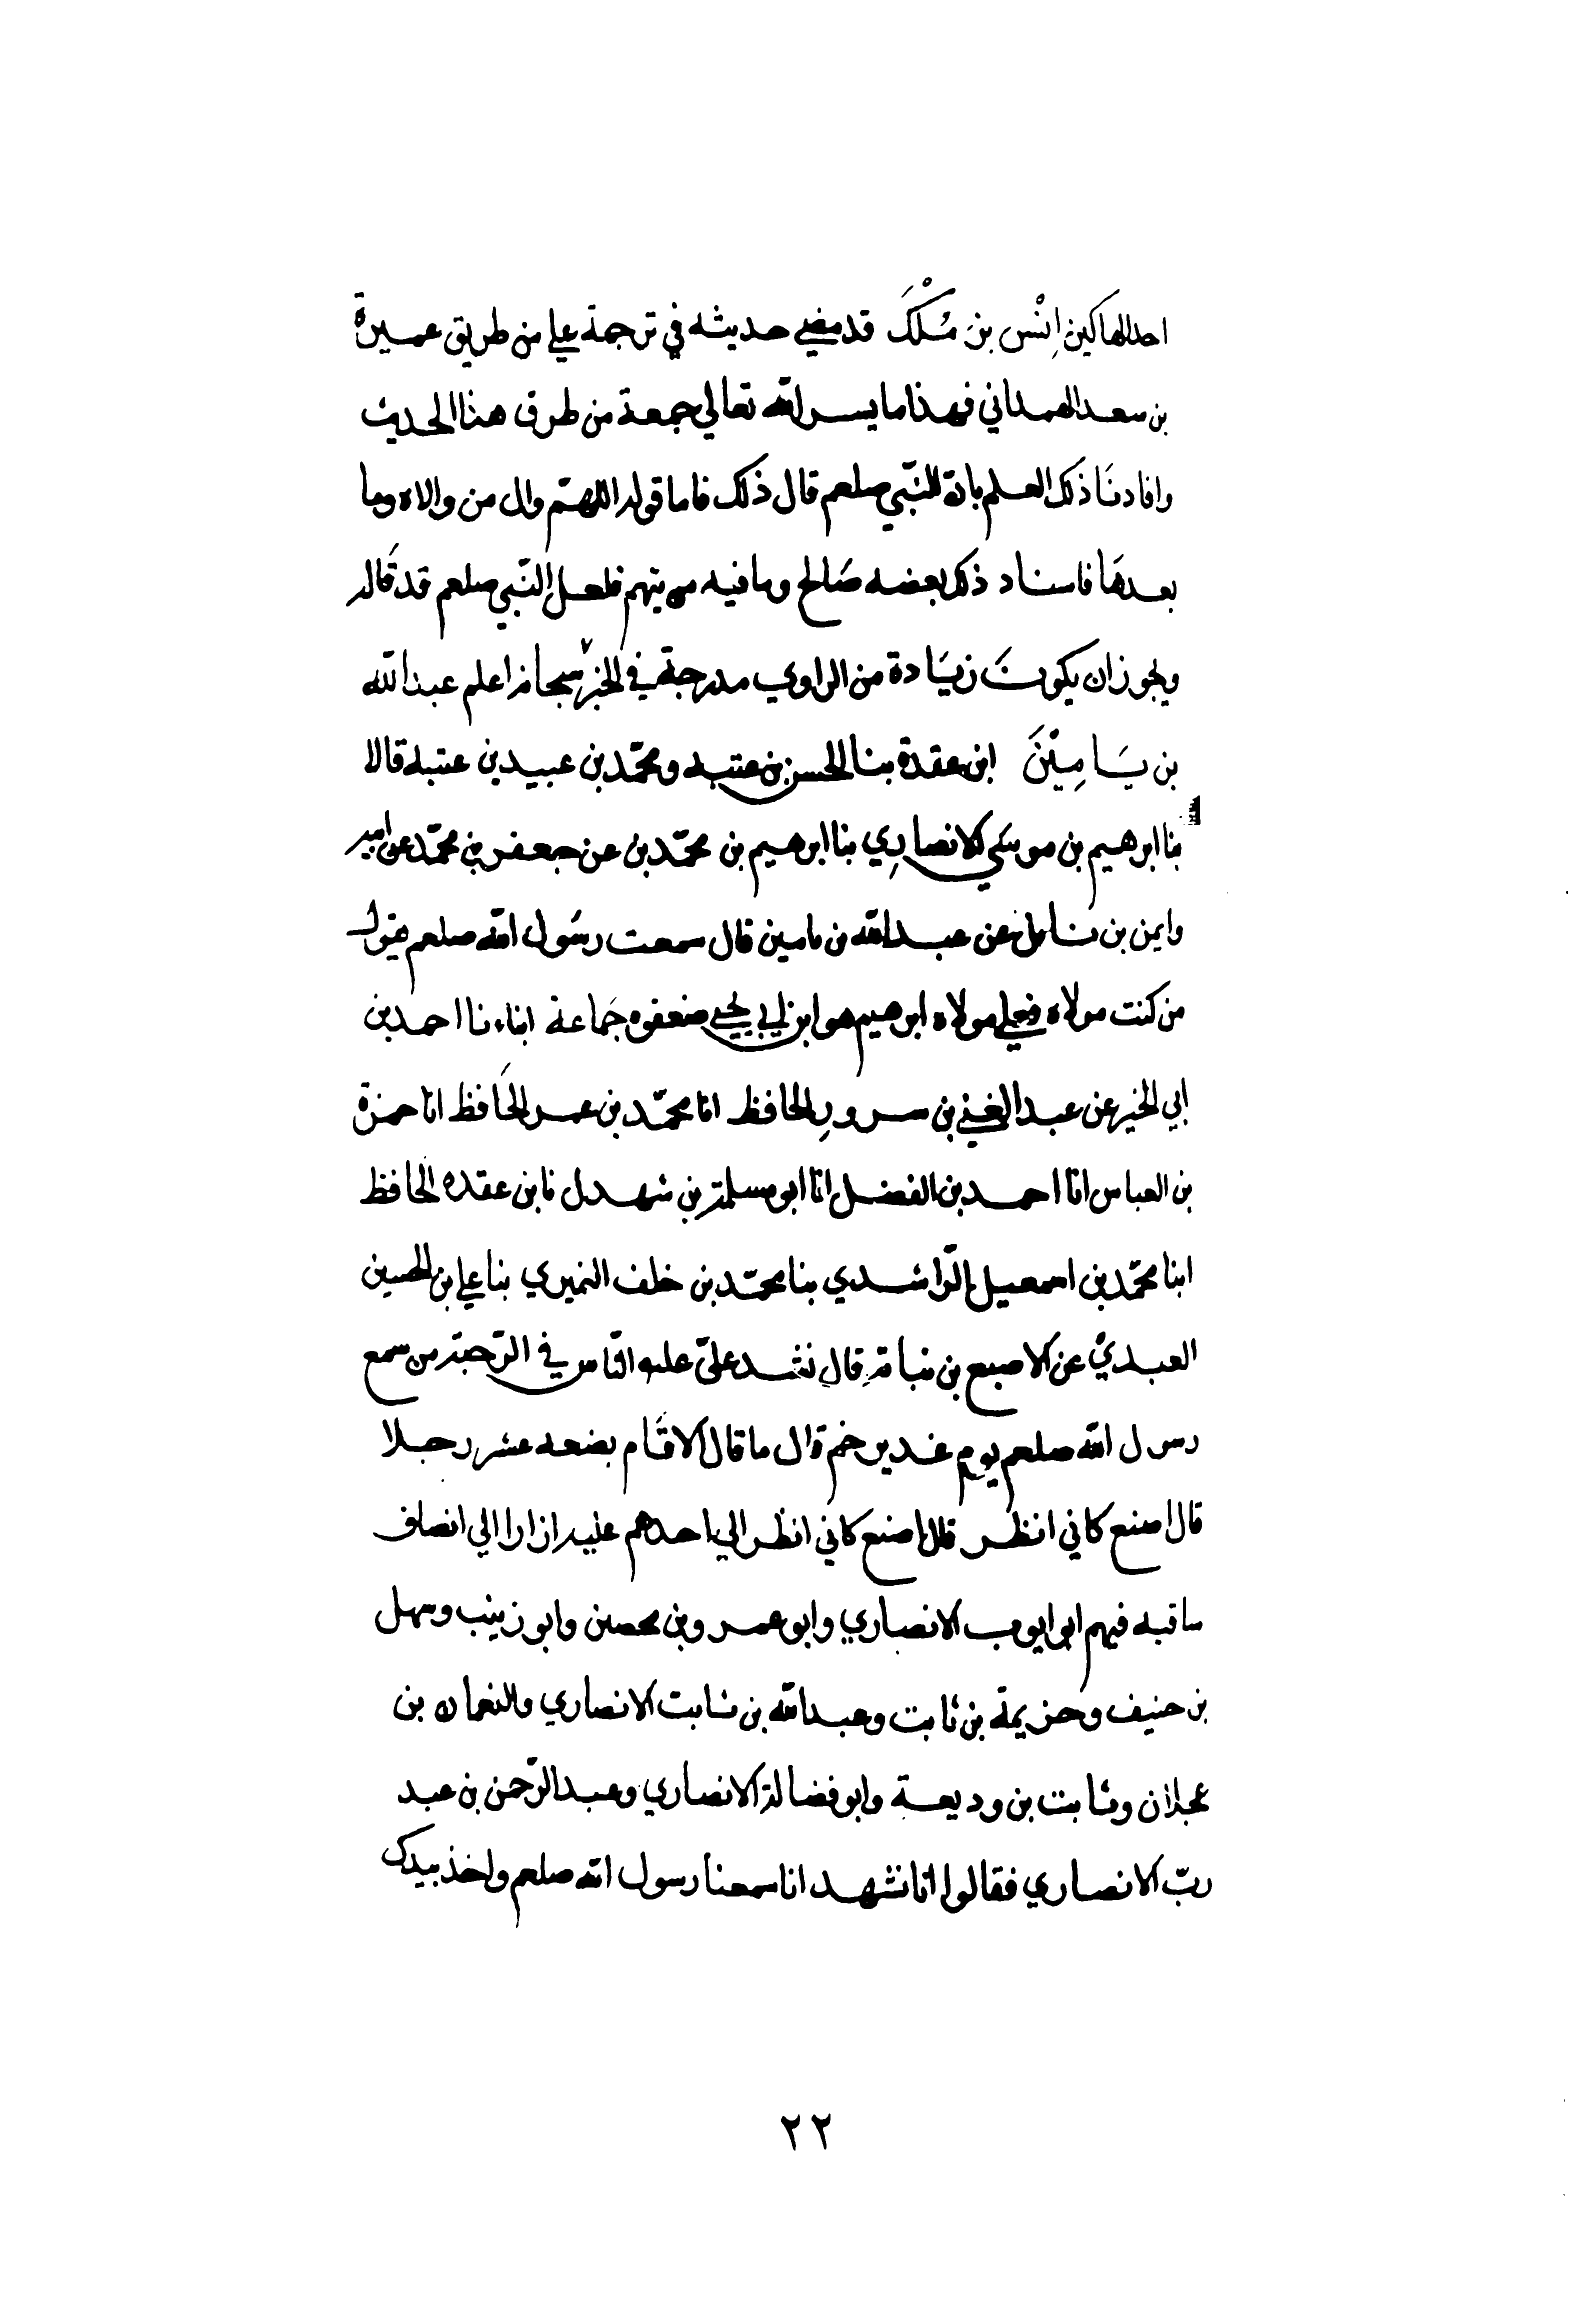 احد الهاكين اِنْس بن مُلْكَ قد مضي حديثه في ترجمة علي من طريق عميرة
بن سعد الهمداني فهذا ما يسر الله تعالي جمعة من طرق هذا الحديث
وافادنَا ذلك العلم بانة النّبي صلعم قال ذلك فاما قوله اللهمّ وال من والاه وما
بعدهَا فاسناد ذكر بعضه صَالح وما فيه من يتهم فلعل النّبي صلعم قد قَاله
ويجوز ان يكونَ زيَادة من الراوي مدرجة في الخبر اعلم عبد الله
بن يَامِيْنَ ابن عقدة بنا الحسن بن عتبه ومحمّد بن عبيد بن عتبه قالا
بنا ابرهيم بن موسي الانصارِي بنا ابرهيم بن محمّد بن عن جعفر بن محمّد عن ابيه
وايمن بن نابل عن عبد الله بن يامين قال سمعت رسُول الله صلعم يقول
من كنت مولاه فعلي مولاه ابرهيم هو ابن ابي يحيي ضعفوه جَماعة انباء نا احمد بن
ابي الخير عن عبد الغني بن سرورِ الحافظ انا محمّد بن عمر الحَافظ انا حمزة
بن العباس انا احمد بن الفضل انا ابو مسلمة بن شهدل نا بن عقده الحافظ
ابنا محمّد بن اسمعيل الرّاشدي بنا محمّد بن خلف النميري بنا علي بن الحسين
العبديْ عن الاصبع بن نباتةِ قال نشد عليّ عليه النّاس في الرّحبة من سمع
رسول الله صلعم يوم غدير خم قال ما قال الا قَام بضعه عشر رجلا
قال اصنع كاني انظر قال اصنع كاني انظر الي احدهم عليه ازارا الي انصاف
ساقيه فيهم ابو ايوب الانصاري وابو عمرو بن محصن وابو زينب وسهل
بن حنيف وخزيمة بن ثابت وعبد الله بن ثابت الانصاري والنعمان بن
عجلان وثابت بن وديعة وابو فضالة الانصاري وعبد الرّحمن بن عبد
ربّ الانصاري فقالوا انا نشهد انا سمعنا رسول الله صلعم واخذ بيدك
٢٢